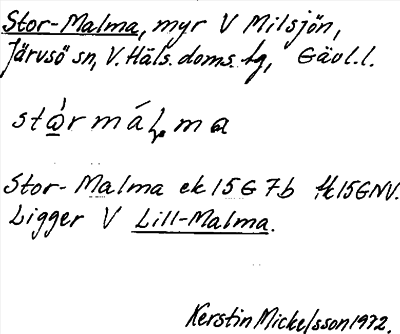 Stor-Malma, myr V Milsjön,
Järvsö sn, V. Häls. doms. tg, Gävl.l.
stårmálma
Stor-Malma ek 15G7b tk15GNV.
Ligger V Lill-Malma.
Kerstin Mickelsson 1972.